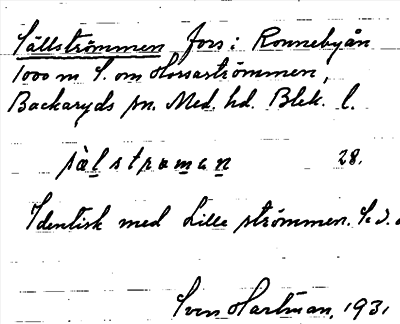 Sällströmmen fors i Ronnebyån
1000 m S. om Horsaströmmen,
Backaryds sn. Med. hd. Blek. l.
sälstroman 28.
Identisk med Lille strömmen. S. d.
Sven Hartman, 1931